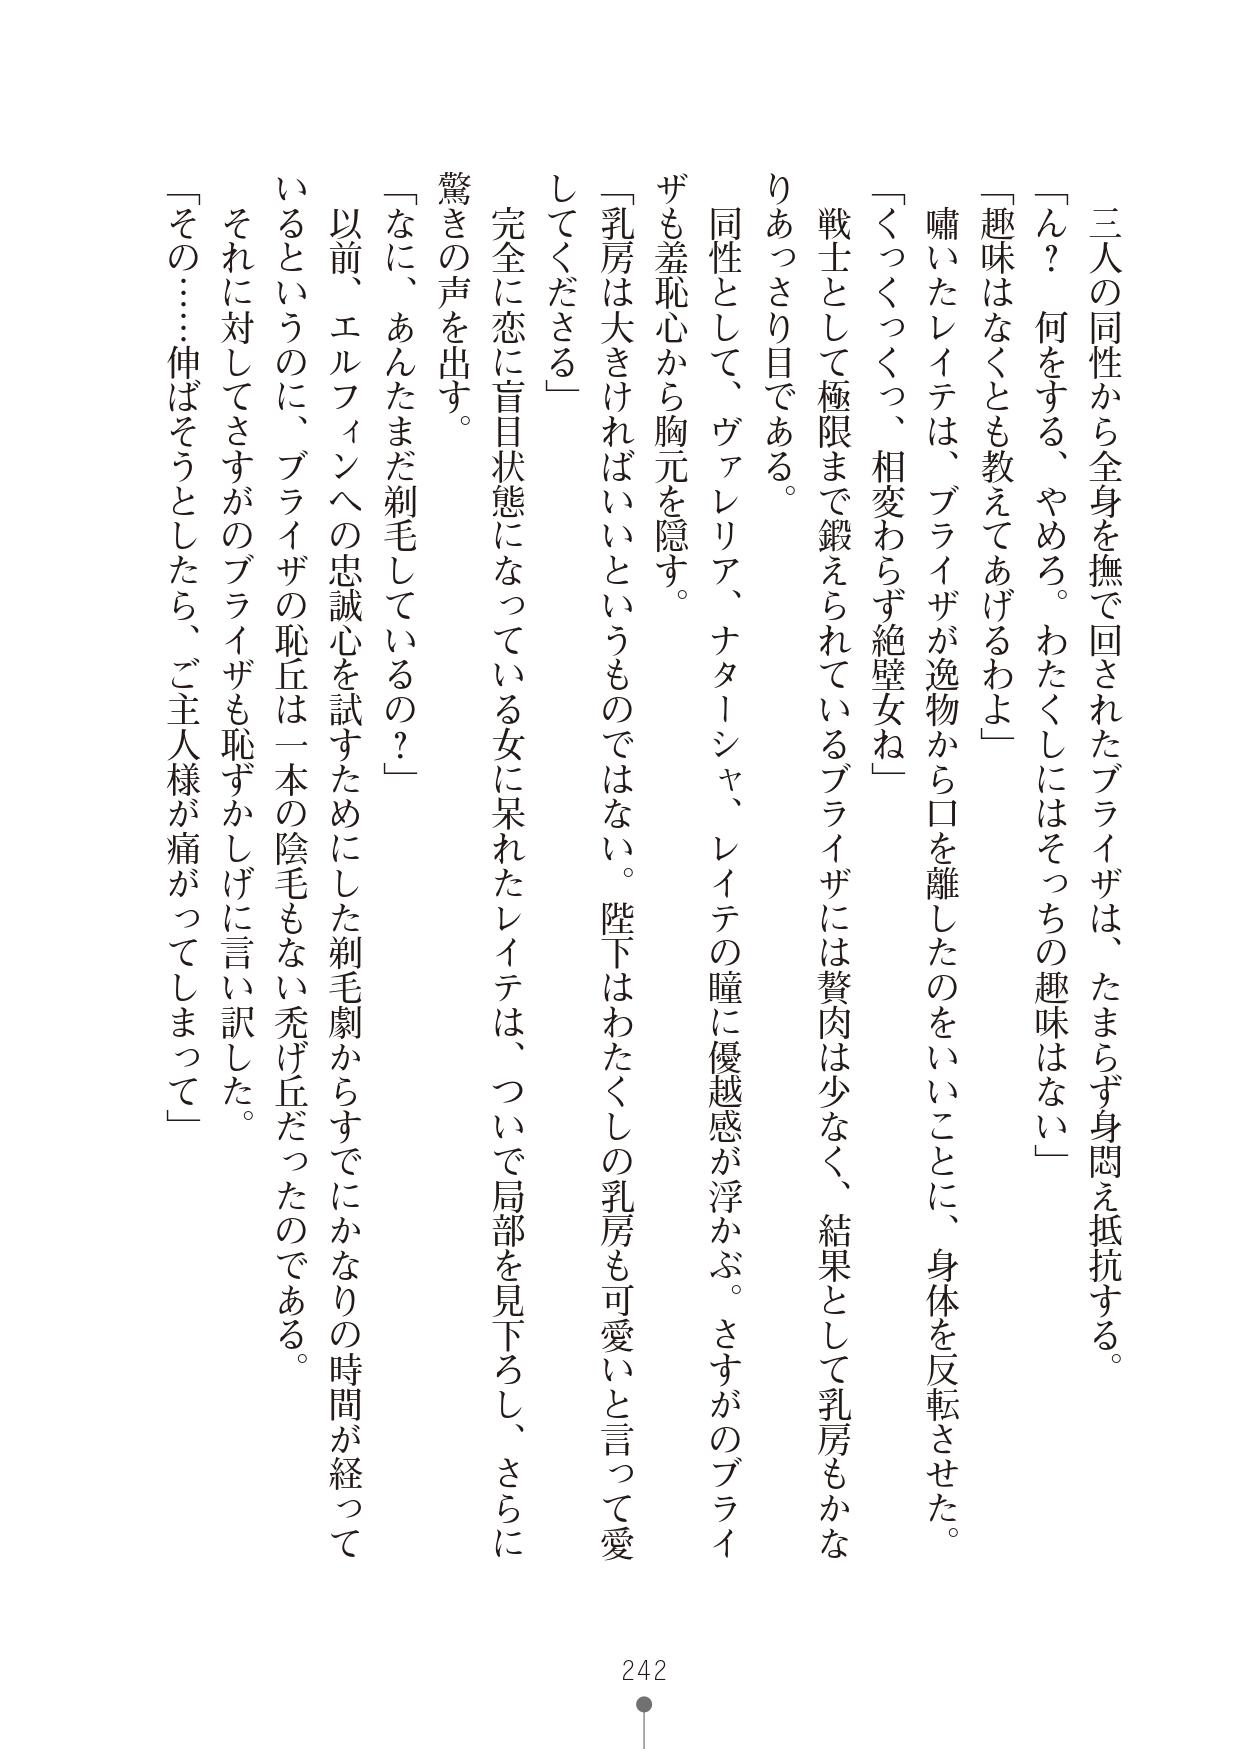 三人の同性から全身を撫で回されたブライザは、たまらず身悶え抵抗する。
「ん？　何をする、やめろ。わたくしにはそっちの趣味はない」
「趣味はなくとも教えてあげるわよ」
　嘯いたレイテは、ブライザが逸物から口を離したのをいいことに、身体を反転させた。
「くっくっくっ、相変わらず絶壁女ね」
　戦士として極限まで鍛えられているブライザには贅肉は少なく、結果として乳房もかな
りあっさり目である。
　同性として、ヴァレリア、ナターシャ、レイテの瞳に優越感が浮かぶ。さすがのブライ
ザも羞恥心から胸元を隠す。
「乳房は大きければいいというものではない。陛下はわたくしの乳房も可愛いと言って愛
してくださる」
　完全に恋に盲目状態になっている女に呆れたレイテは、ついで局部を見下ろし、さらに
驚きの声を出す。
「なに、あんたまだ剃毛しているの？」
　以前、エルフィンへの忠誠心を試すためにした剃毛劇からすでにかなりの時間が経って
いるというのに、ブライザの恥丘は一本の陰毛もない禿げ丘だったのである。
　それに対してさすがのブライザも恥ずかしげに言い訳した。
「その……伸ばそうとしたら、ご主人様が痛がってしまって」
242